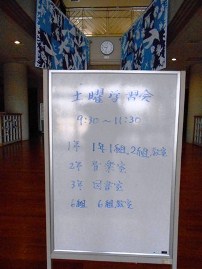 土曜学習会
9:30～11:30
1年 1年1組,2組教室
2年 音楽室
3年 図書室
6組 6組教室